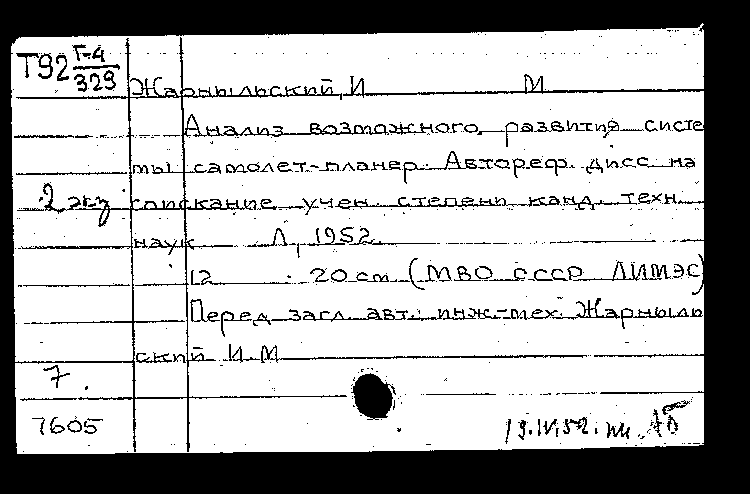 Т92 Г-4
329
Жарныльский, И М
Анализ возможного развития систе
мы самолет-планер. Автореф. дисс на
2 экз соискание учен. степени канд. техн.
наук Л, 1952.
12 20 cm (МВО СССР ЛИМЭС)
Перед загл. авт.: инж-мех. Жарныль
ский И. М
7.
7605
19.IV.52. АБ